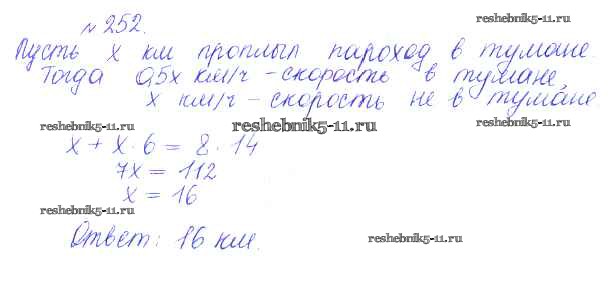 № 252.
reshebnik5-11.ru
Пусть x км проплыл пароход в тумане.
Тогда 0,5x км/ч - скорость в тумане,
x км/ч - скорость не в тумане
reshebnik5-11.ru reshebnik5-11.ru reshebnik5-11.ru
x + x · 6 = 8 · 14
7x = 112
x = 16
reshebnik5-11.ru
Ответ: 16 км.
reshebnik5-11.ru